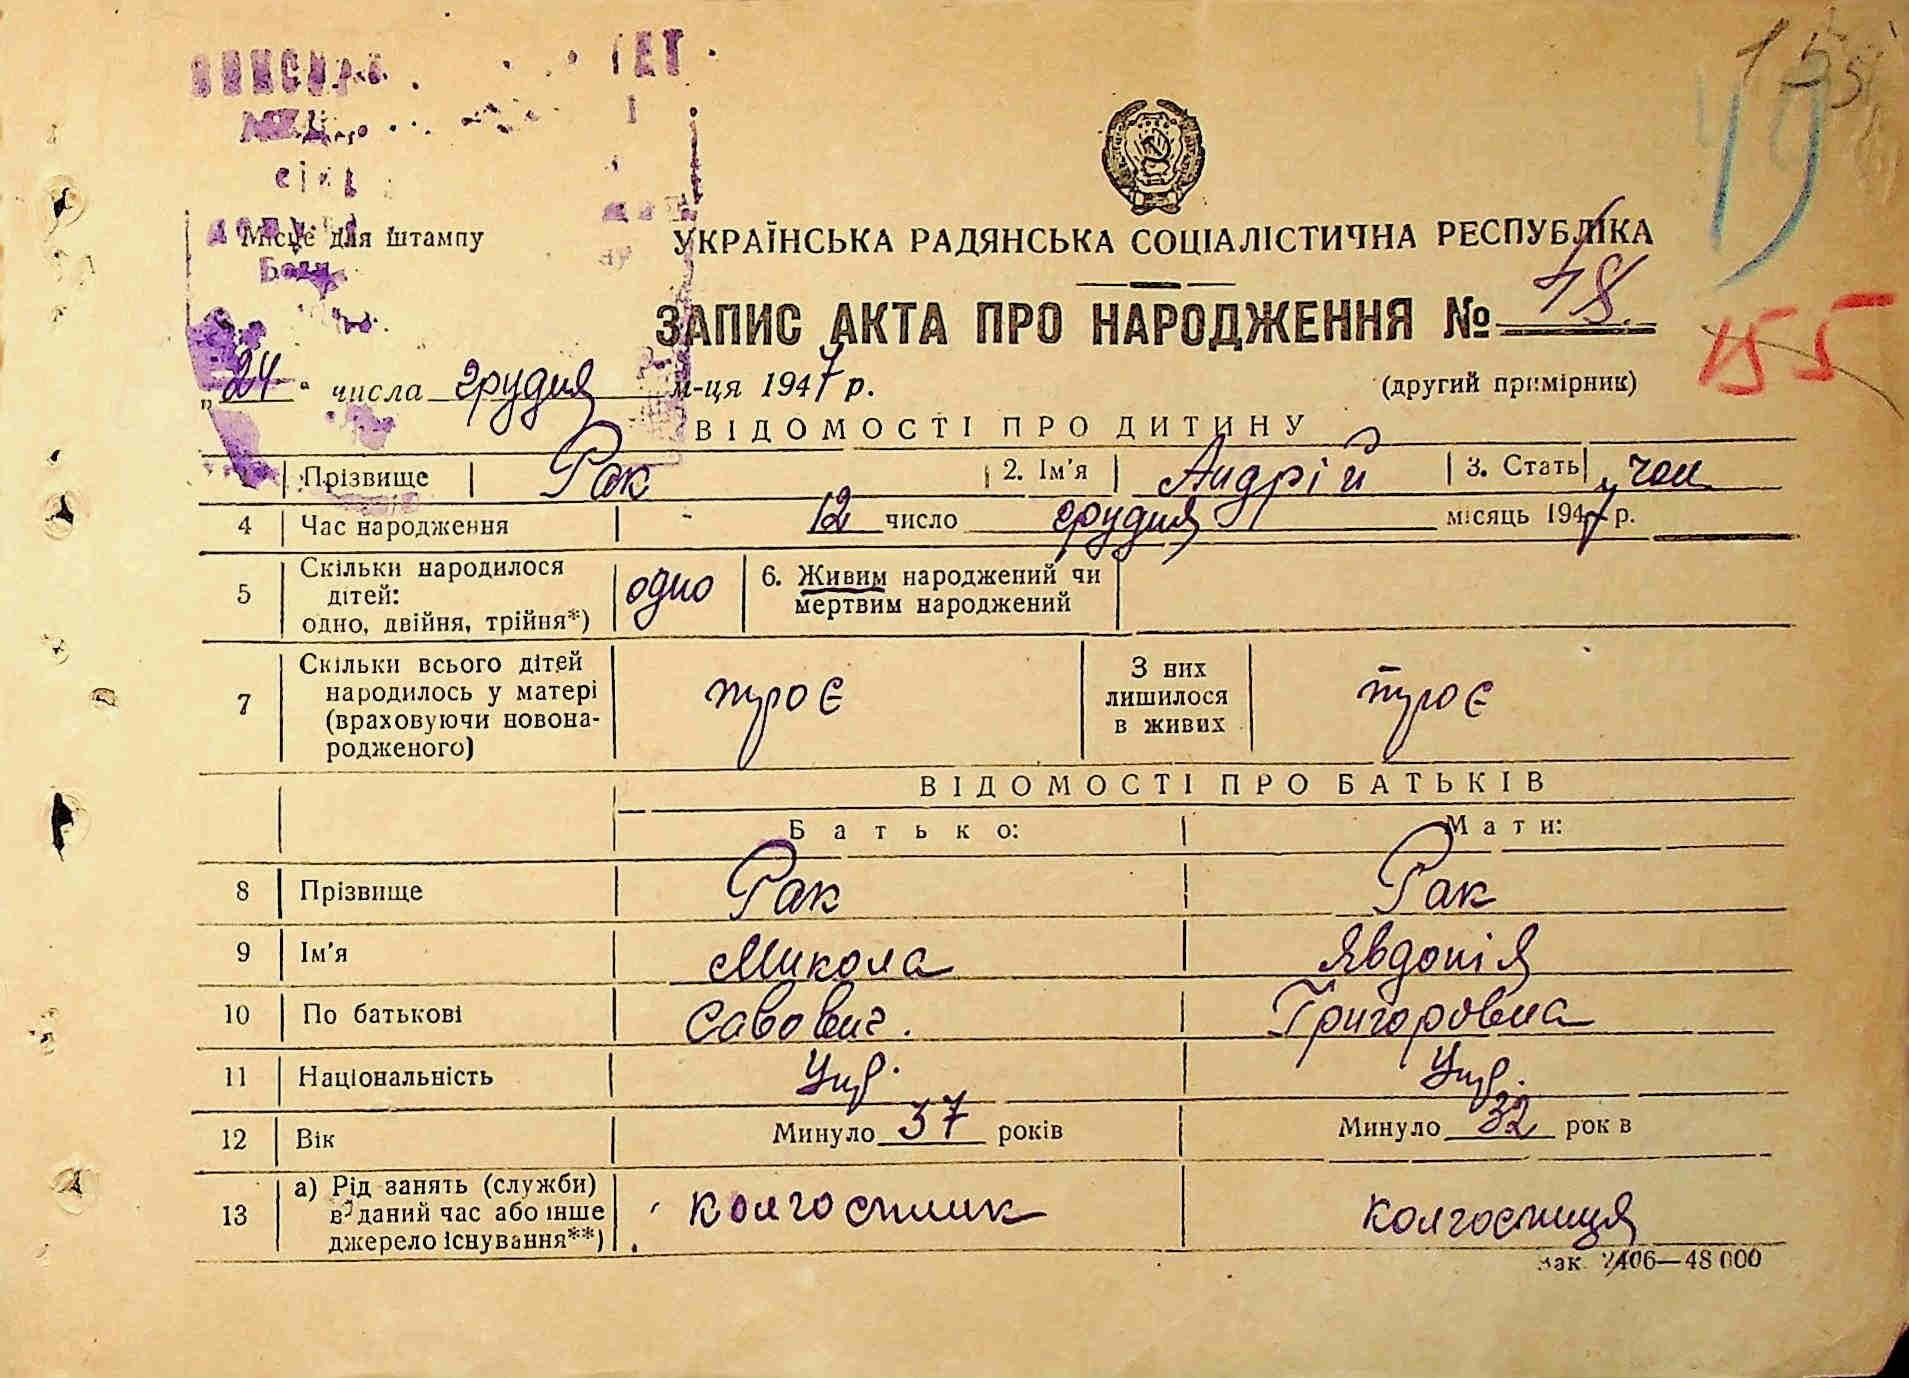 155
Місце для штампу
УКРАЇНСЬКА РАДЯНСЬКА СОЦІАЛІСТИЧНА РЕСПУБЛІКА
ЗАПИС АКТА ПРО НАРОДЖЕННЯ № 18.
155
„24" числа грудня м-ця 1947 р. (другий примірник)
ВІДОМОСТІ ПРО ДИТИНУ
Прізвище Рак 2. Ім'я Андрій 3. Стать чол
4 Час народження 12 число грудня місяць 1947 р.
5 Скільки народилося дітей: одно, двійня, трійня*) одно 6. Живим народжений чи мертвим народжений
7 Скільки всього дітей народилось у матері (враховуючи новонародженого) троє З них лишилося в живих троє
ВІДОМОСТІ ПРО БАТЬКІВ
Батько: Мати:
8 Прізвище Рак Рак
9 Ім'я Микола Явдопія
10 По батькові Савович. Григоровна
11 Національність Укр. Укр.
12 Вік Минуло 37 років Минуло 32 рок в
13 а) Рід занять (служби) в даний час або інше джерело існування**) колгоспник колгоспниця
Зак. 2406—48 000